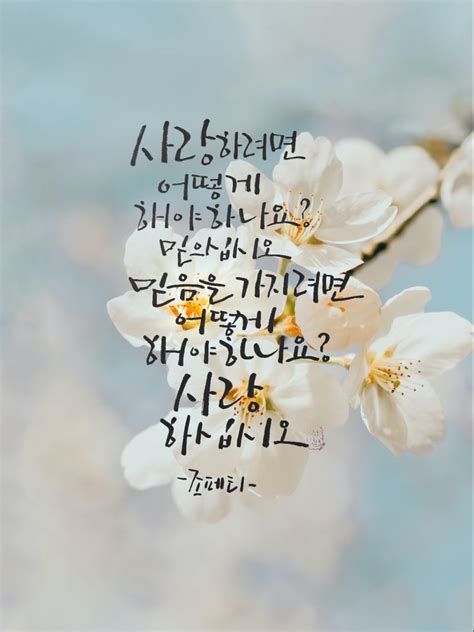 사랑하려면
어떻게
해야 하나요?
믿으십시오
믿음을 가지려면
어떻게
해야 하나요?
사랑
하십시오
-조페티-